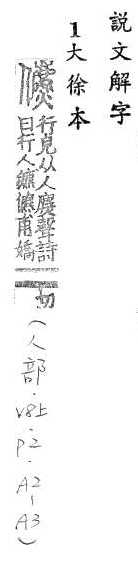 說文解字
1大徐本
儦
行皃从人麃聲詩
曰行人儦儦甫嬌切
(人部．V8上．P2．A2－A3)